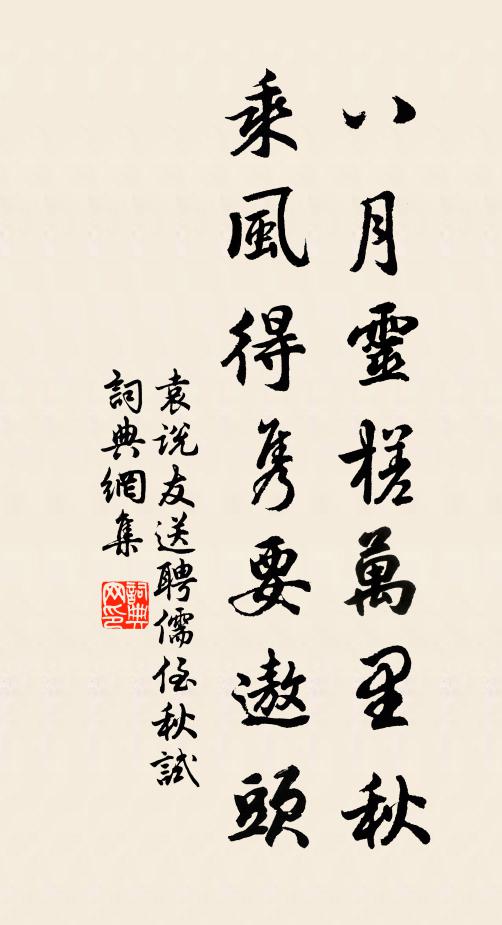 八月靈槎萬里秋
乘風得雋要遨頭
袁說友送聘儒侄秋試
詞典網集
詞典
网印